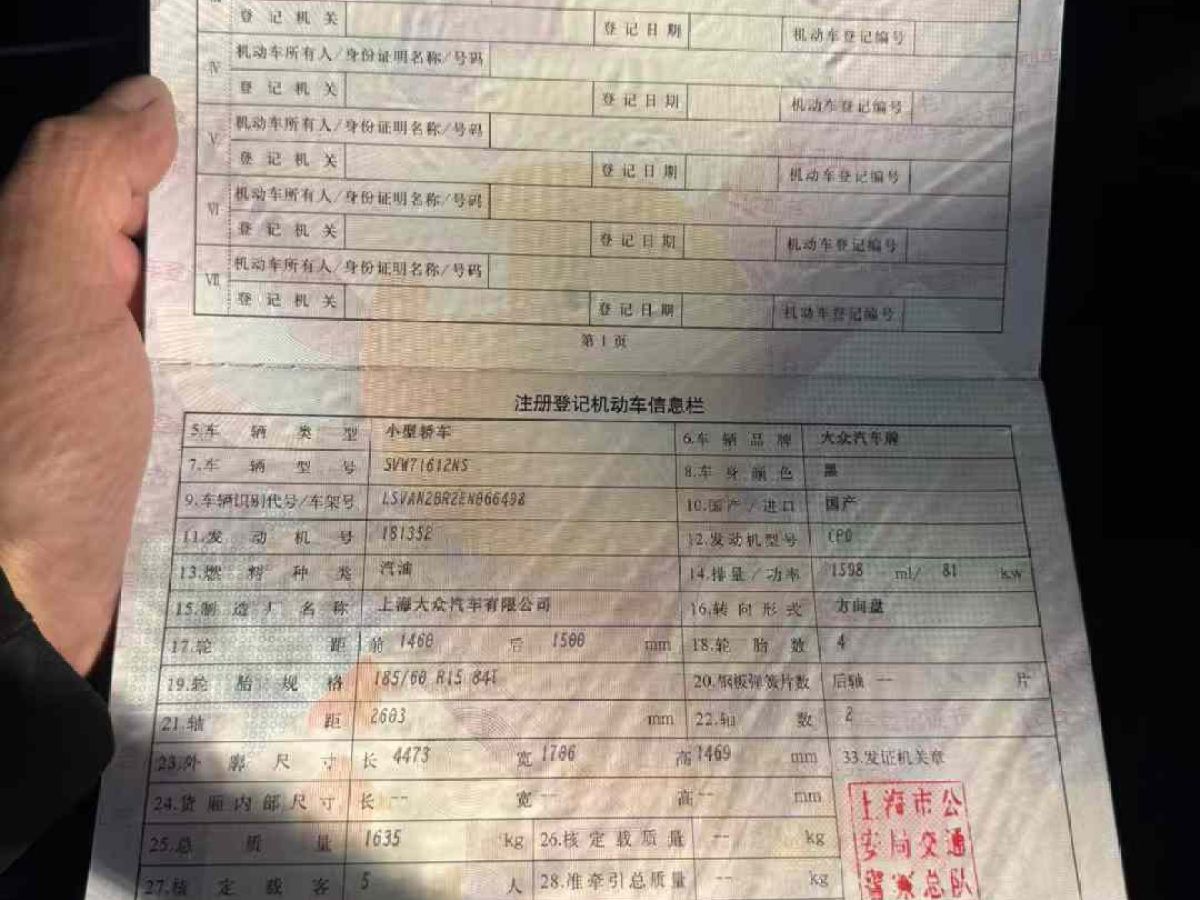 登记机关 登记日期 机动车登记编号
Ⅳ 机动车所有人/身份证明名称/号码
登记机关 登记日期 机动车登记编号
Ⅴ 机动车所有人/身份证明名称/号码
登记机关 登记日期 机动车登记编号
Ⅵ 机动车所有人/身份证明名称/号码
登记机关 登记日期 机动车登记编号
Ⅶ 机动车所有人/身份证明名称/号码
登记机关 登记日期 机动车登记编号
第1页
注册登记机动车信息栏
5.车辆类型 小型轿车 6.车辆品牌 大众汽车牌
7.车辆型号 SVW71612NS 8.车身颜色 黑
9.车辆识别代号/车架号 LSVAN2BR2EN066498 10.国产/进口 国产
11.发动机号 181352 12.发动机型号 CPD
13.燃料种类 汽油 14.排量/功率 1598 ml/ 81 kw
15.制造厂名称 上海大众汽车有限公司 16.转向形式 方向盘
17.轮距 前 1460 后 1500 mm 18.轮胎数 4
19.轮胎规格 185/60 R15 84T 20.钢板弹簧片数 后轴 -- 片
21.轴距 2603 mm 22.轴数 2
23.外廓尺寸 长 4473 宽 1706 高 1469 mm 33.发证机关章
24.货厢内部尺寸 长 -- 宽 -- 高 -- mm
25.总质量 1635 kg 26.核定载质量 -- kg
27.核定载客 5 人 28.准牵引总质量 -- kg
上海市公
安局交通
警察总队